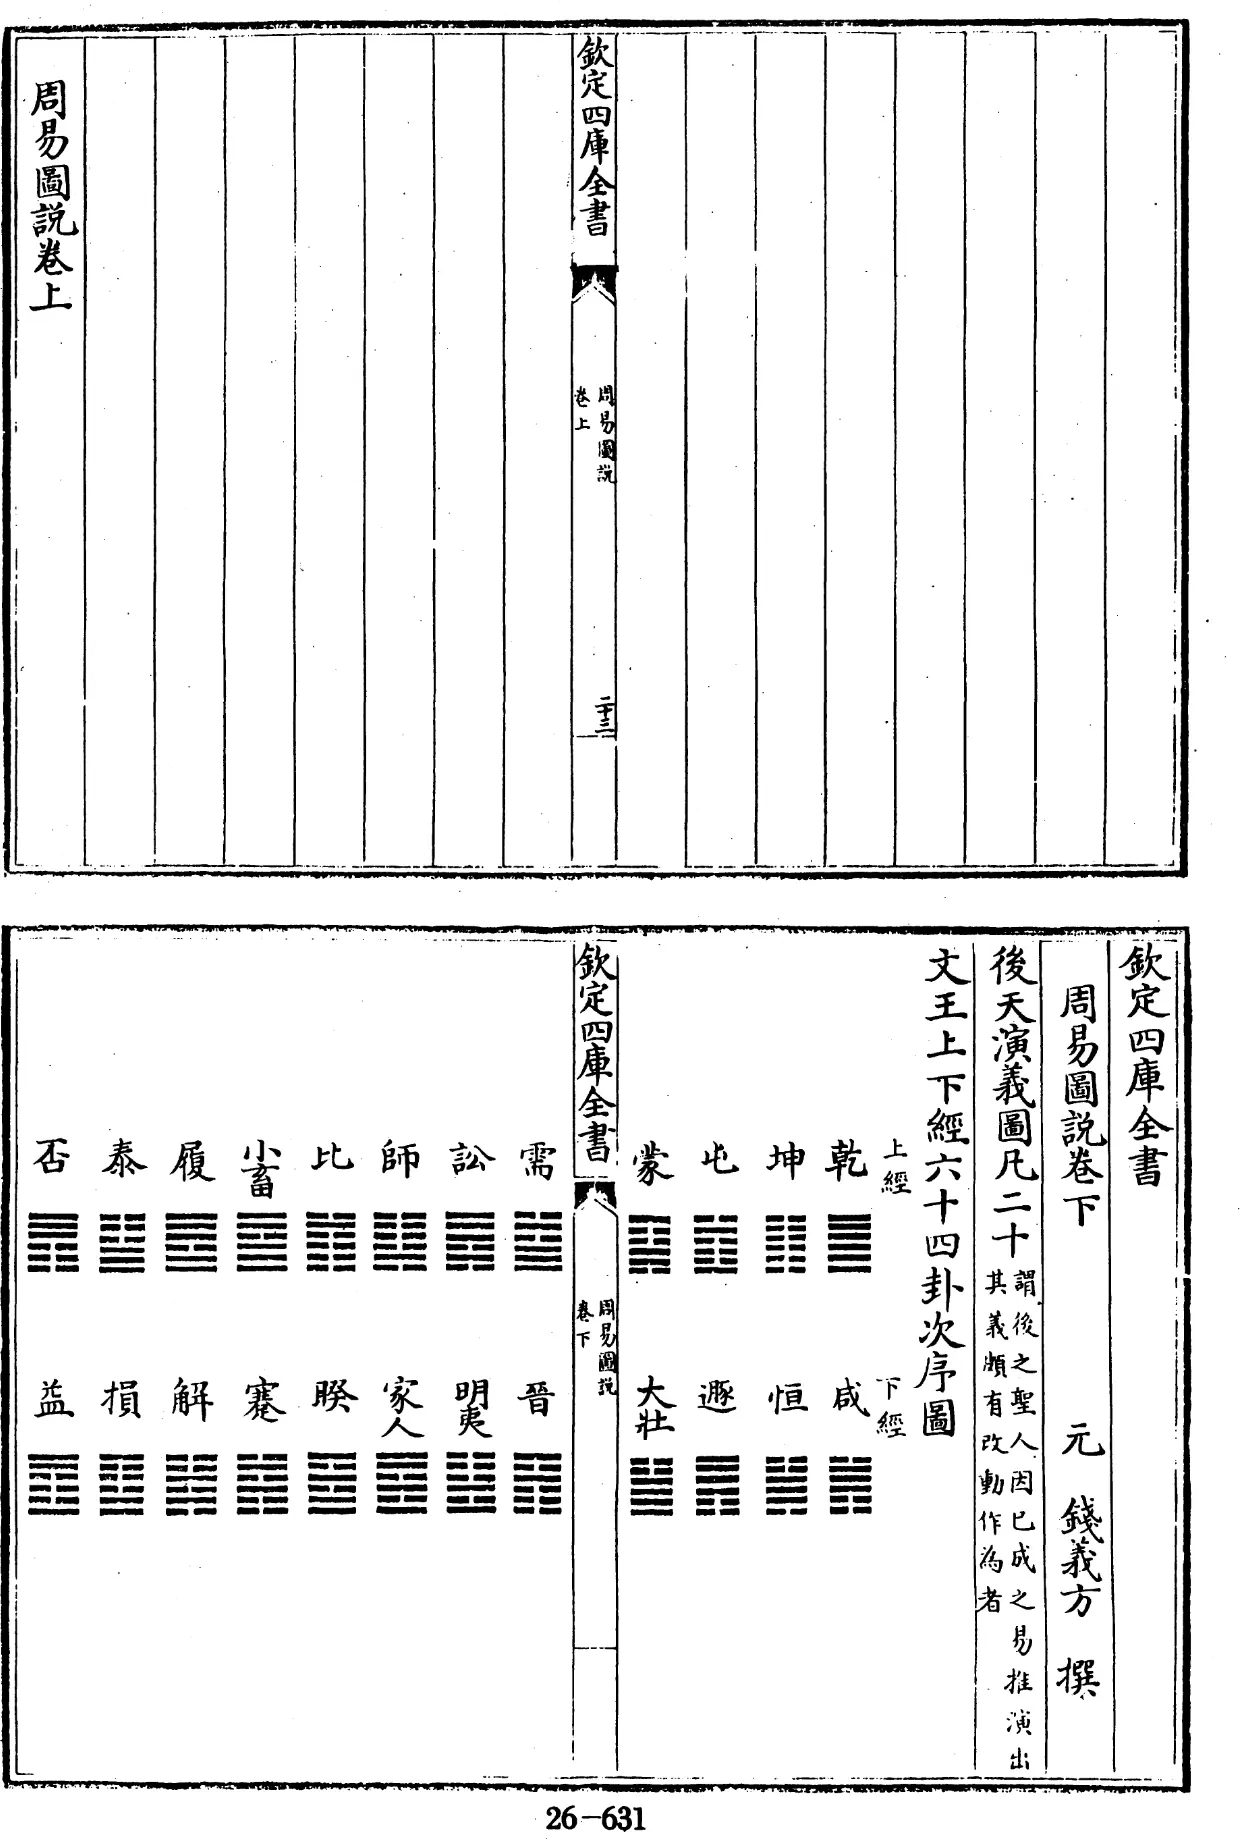 欽定四庫全書
周易圖說
卷上
二十三
周易圖說卷上
欽定四庫全書
周易圖說卷下
元 錢義方 撰
後天演義圖凡二十
謂後之聖人因已成之易推演出
其義頗有改動作為者
文王上下經六十四卦次序圖
上經
乾 坤 屯 蒙
下經
咸 恒 遯 大壯
欽定四庫全書
周易圖說
卷下
需 訟 師 比 小畜 履 泰 否
晉 明夷 家人 睽 蹇 解 損 益
26-631